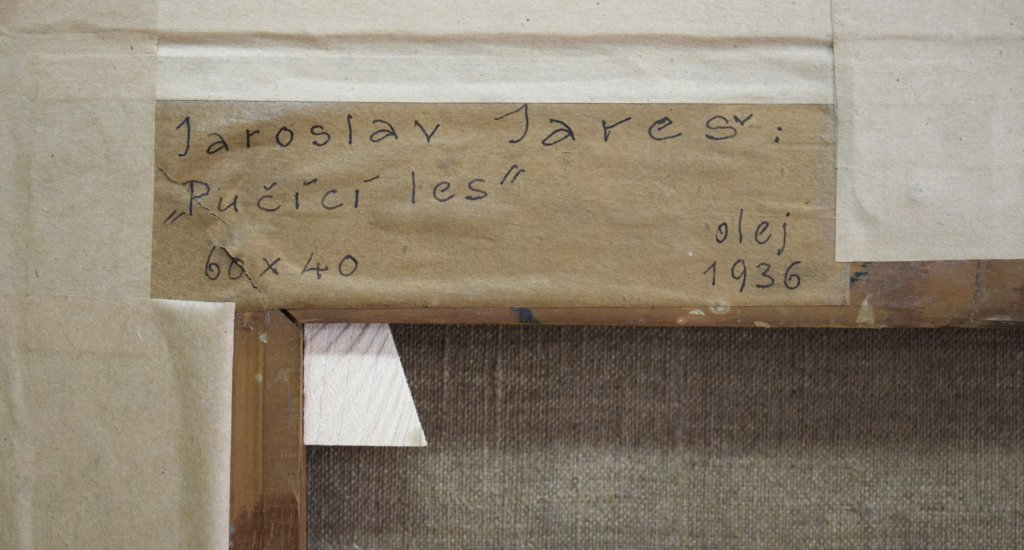 Jaroslav Jareš:
„Pučící les“
60 x 40
olej
1936